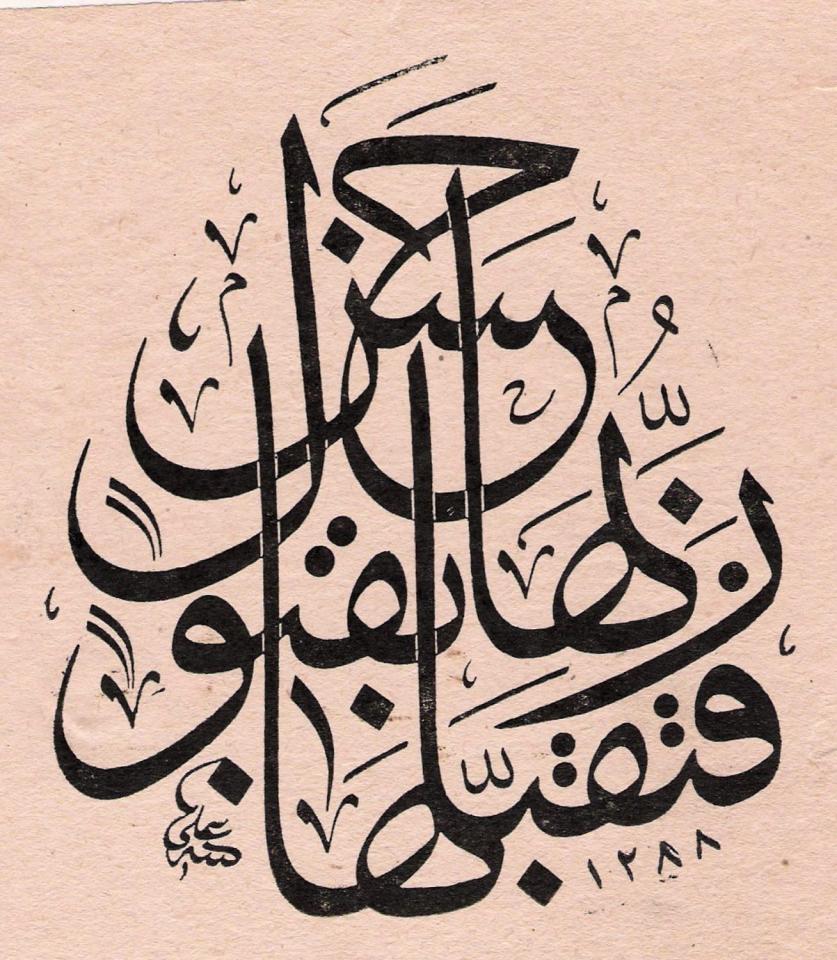 فتقبّلها ربُّها بقبول حسن
كتبه علي
١٢٨٨